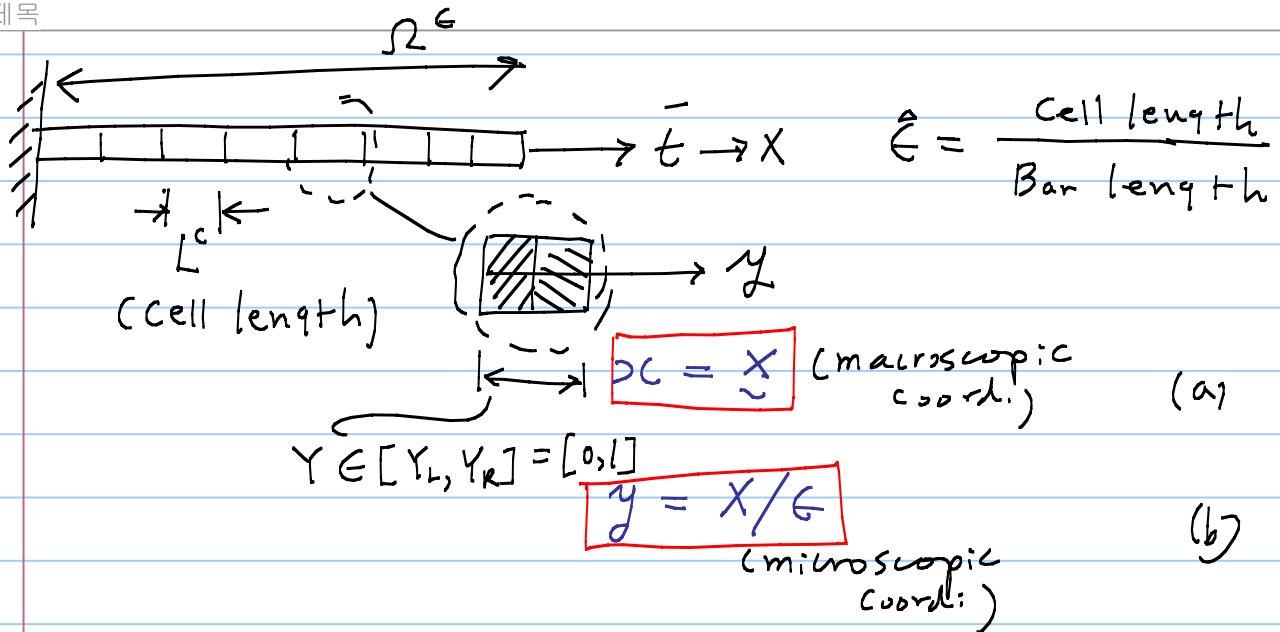 제목
Ω^ϵ
t̄ → X
ϵ̂ = Cell length / Bar length
L^c
(Cell length)
y
x = X (macroscopic coordi.) (a)
Y ∈ [Y_L, Y_R] = [0, 1]
y = X/ϵ (b)
(microscopic
coordi.)